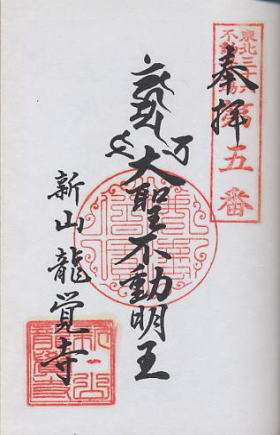 奉拝
東北三十六
不動霊場
第五番
大聖不動明王
新山龍覚寺